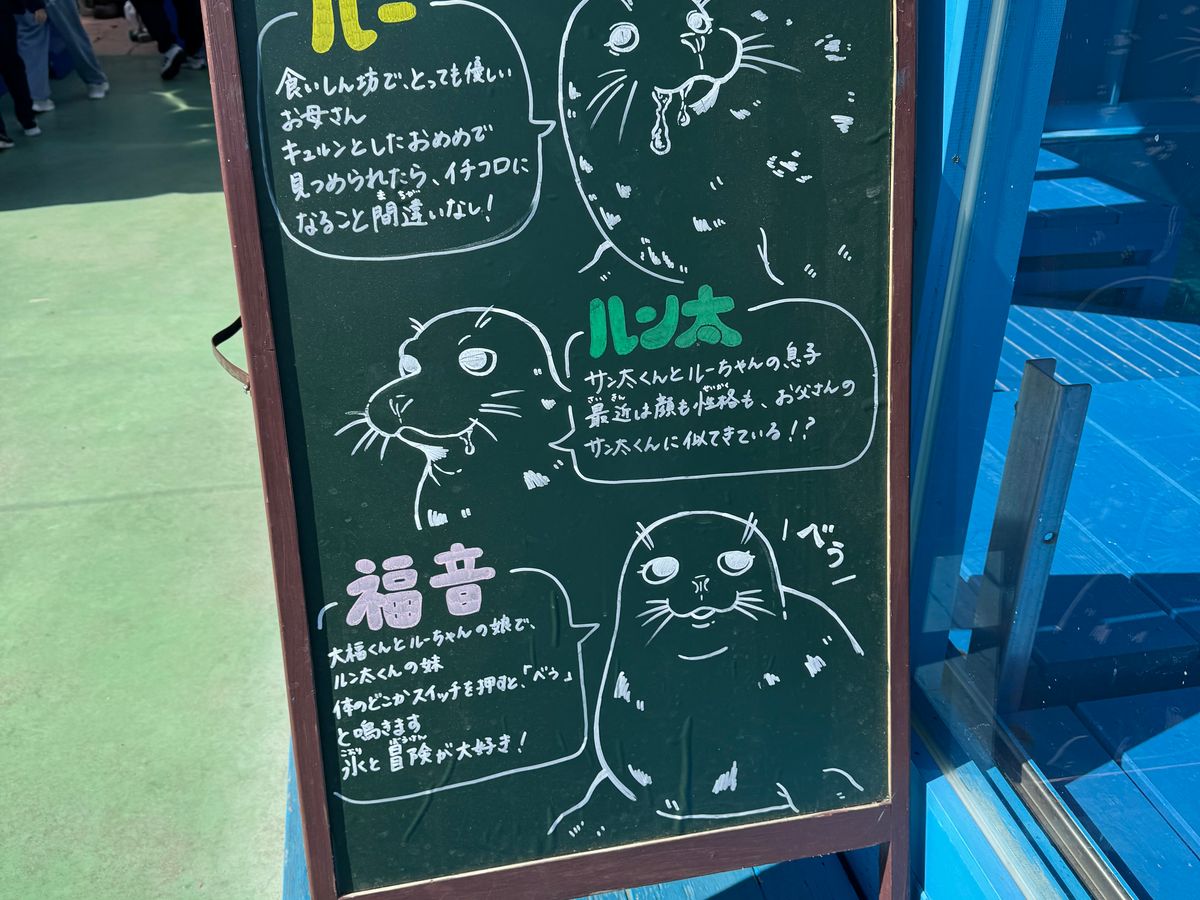 ルー
食いしん坊で、とっても優しい
お母さん
キュルンとしたおめめで
見つめられたら、イチコロに
まちが
なること間違いなし!
ルン太
サン太くんとルーちゃんの息子
さいきん せいかく
最近は顔も性格も、お父さんの
サン太くんに似てきている!?
べう
福音
大福くんとルーちゃんの娘で、
ルン太くんの妹
体のどこかスイッチを押すと、「べう」
と鳴きます
こおり ぼうけん
氷と冒険が大好き!